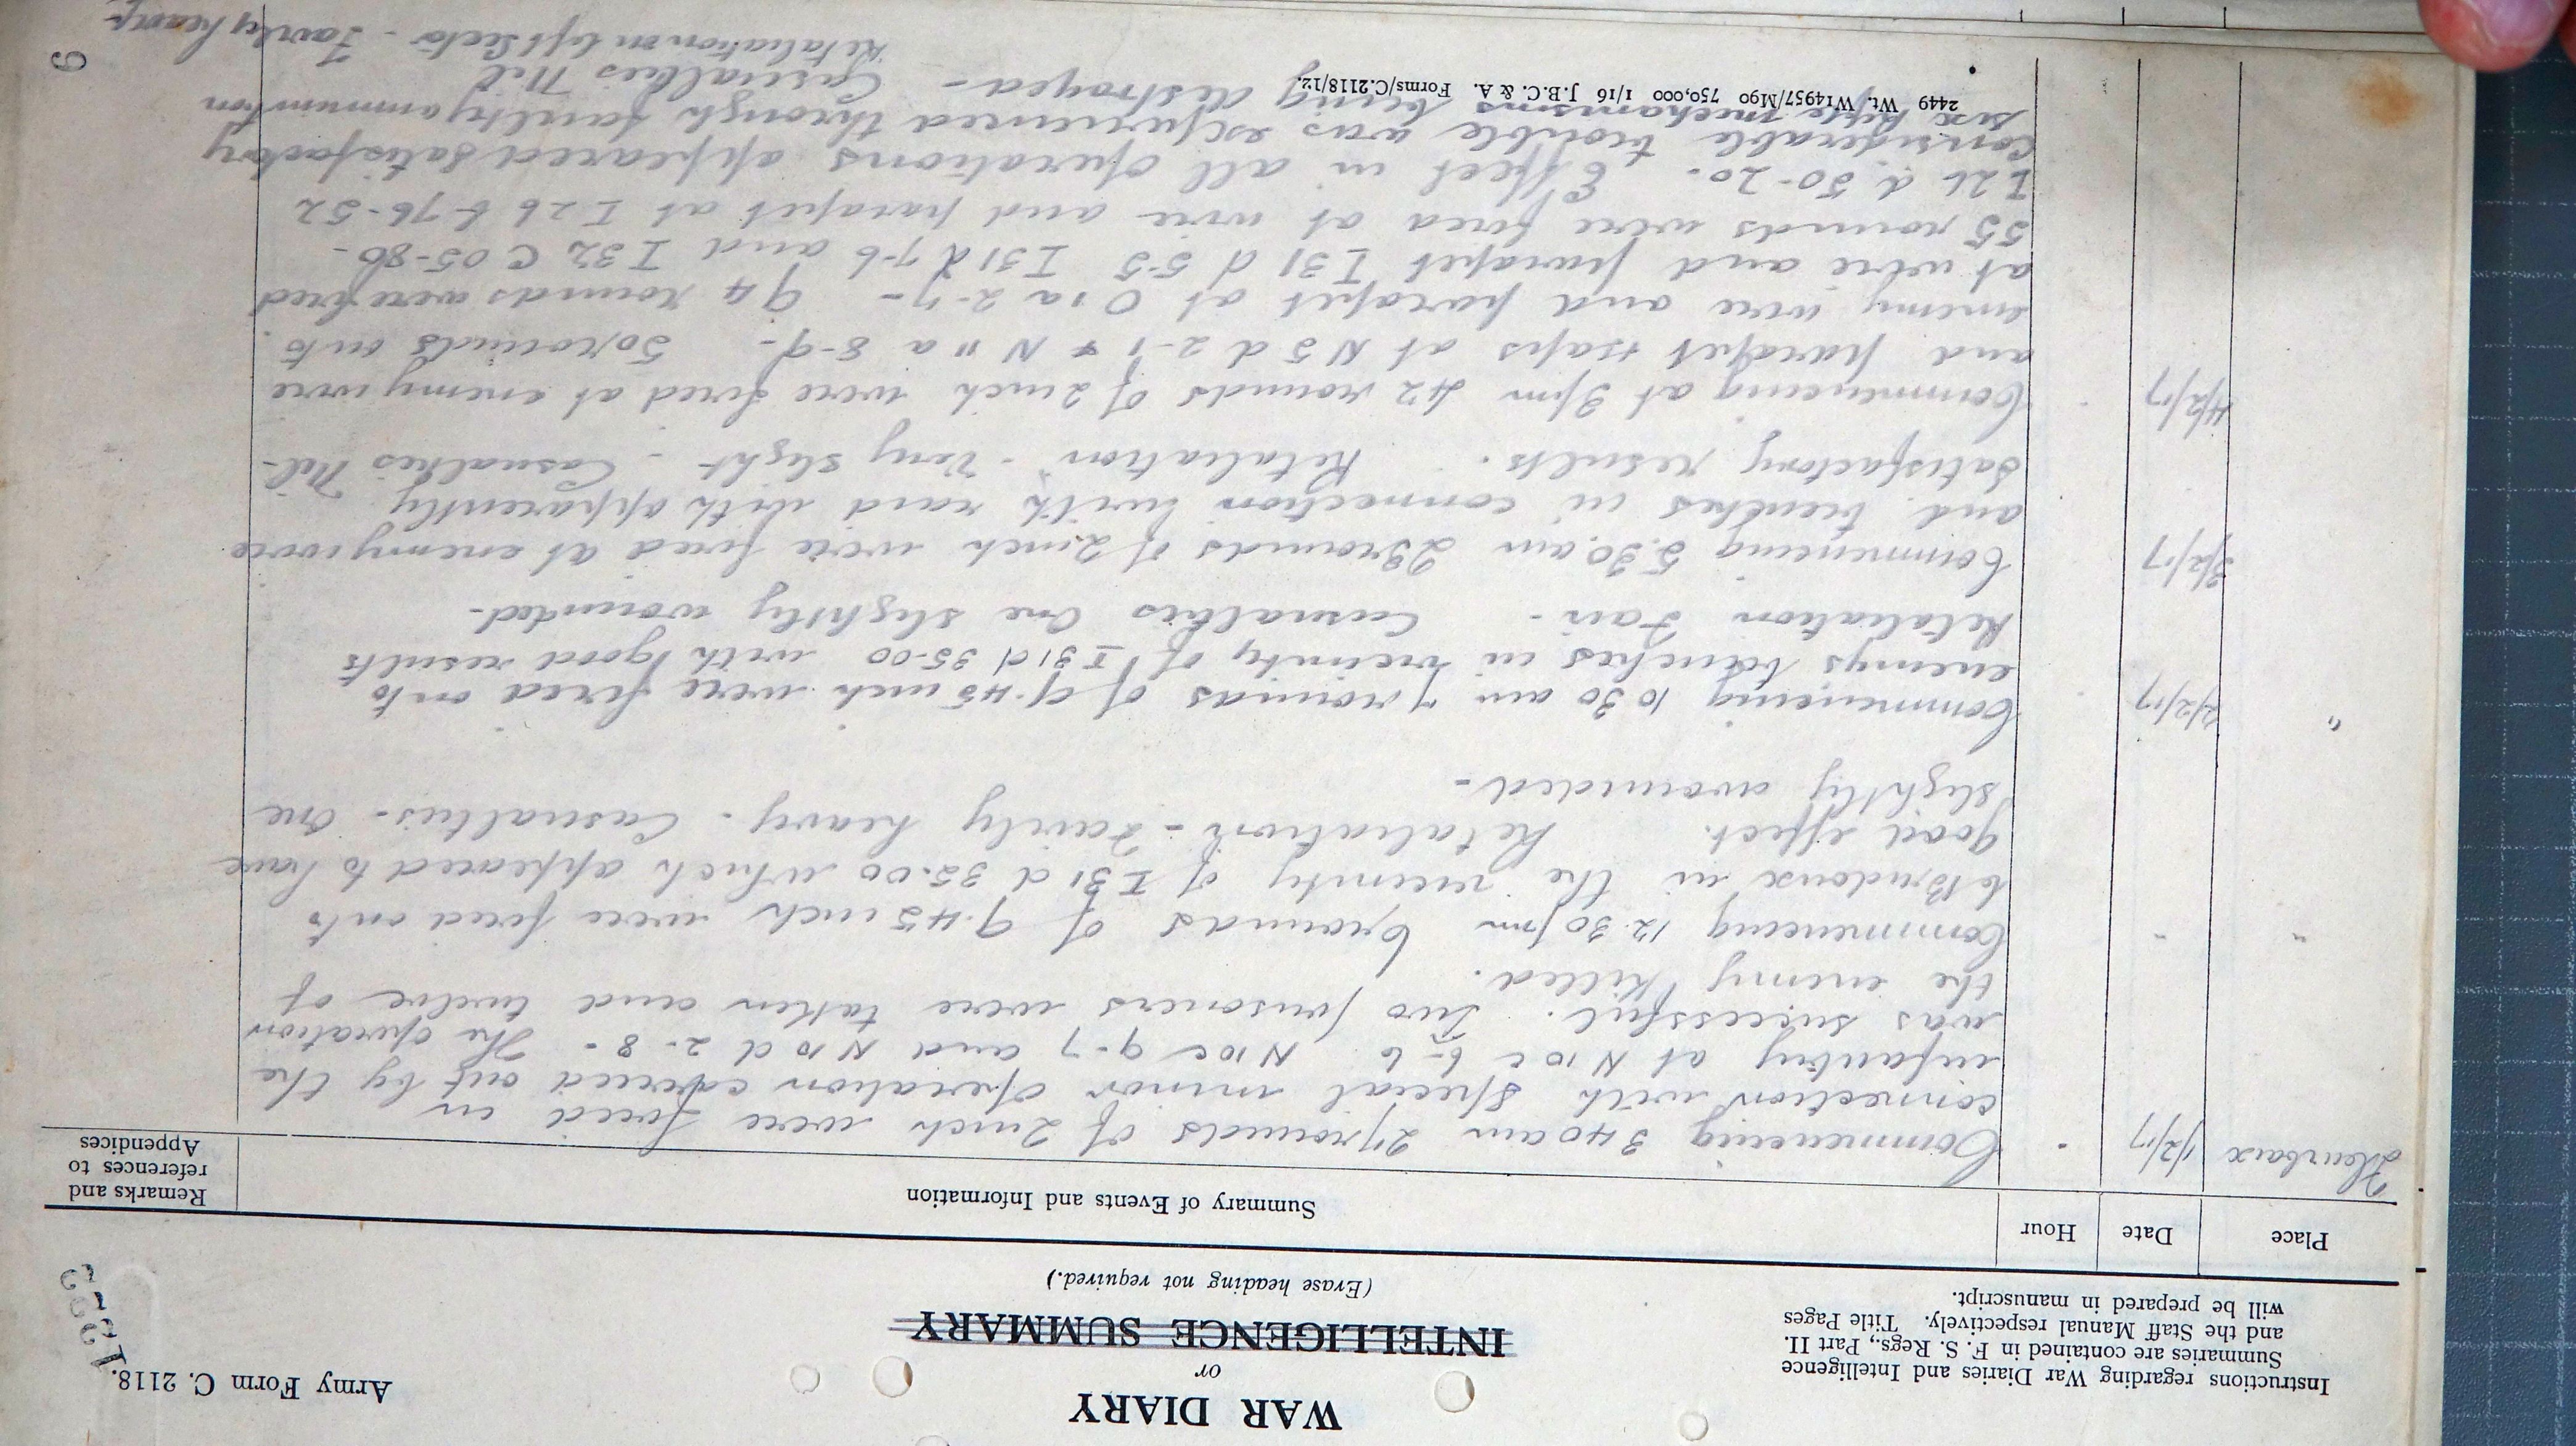 Army Form C. 2118.
1333
WAR DIARY
or
INTELLIGENCE SUMMARY
(Erase heading not required.)
Instructions regarding War Diaries and Intelligence
Summaries are contained in F. S. Regs., Part II.
and the Staff Manual respectively. Title Pages
will be prepared in manuscript.
Place
Date
Hour
Summary of Events and Information
Remarks and
references to
Appendices
Fleurbaix 1/2/17 Commencing 3 40 am 27 rounds of 2 inch were fired in
connection with special minor operation carried out by the
infantry at N 10 c 6-6 N 10 c 9-7 and N 10 d 2-8 - The operation
was successful. Two prisoners were taken and twelve of
the enemy killed.
" " Commencing 12.30 pm 6 rounds of 9.45 inch were fired onto
in the vicinity of I 31 d 35.00 which appeared to have
good effect. Retaliation - Fairly heavy - Casualties - One
slightly wounded -
" 2/2/17 Commencing 10 30 am 7 rounds of 9.45 inch were fired onto
enemys trenches in vicinity of I 31 d 35-00 with good results
Retaliation Fair - Casualties One slightly wounded -
3/2/17 Commencing 5.30 am 28 rounds of 2 inch were fired at enemy wire
and trenches in connection with raid with apparently
satisfactory results. Retaliation - Very slight - Casualties Nil -
4/2/17 Commencing at 3 pm 42 rounds of 2 inch were fired at enemy wire
and parapet at N 5 d 2-1 & N 11 a 8-9 - 50 rounds onto
enemy wire and parapet at O 1 a 2-7 - 94 rounds were fired
at wire and parapet I 31 d 5-5 I 31 d 7-6 and I 32 C 05-80 -
55 rounds were fired at wire and parapet at I 26 b 76-52
I 26 d 50-20. Effect in all operations appeared satisfactory
Considerable trouble was experienced through faulty ammunition
six rifle mechanisms being destroyed - Casualties Nil
Retaliation on left sector - Fairly heavy -
2449 Wt. W14957/M90 750,000 1/16 J.B.C. & A. Forms/C.2118/12.
9